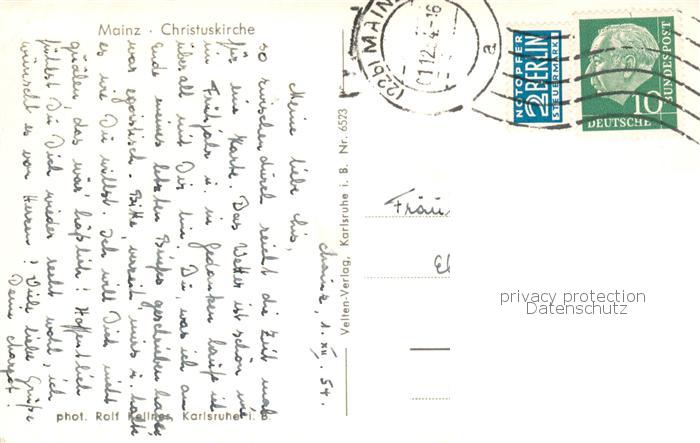 Mainz · Christuskirche
(22b) MAINZ
01.12.54-16
a
NOTOPFER
2 BERLIN
STEUERMARKE
DEUTSCHE
BUNDESPOST
10
Mainz, 1.XII.54.
Mein liebe
so zwischendurch reicht die Zeit mal
für eine Karte. Das Wetter ist schön wie
im Frühjahr u. in Gedanken laufe ich
überall mit Dir hin. Du, was ich am
Ende meines letzten Briefes geschrieben habe,
war egoistisch. Bitte, verzeih mirs u. halte
es wie Du willst. Ich will Dich nicht
quälen, das wär häßlich! Hoffentlich
fühlst Du Dich wieder recht wohl, ich
wünsch es von Herzen! Viele liebe Grüße
Deine
Velten-Verlag, Karlsruhe i. B. Nr. 6523
Fräu
privacy protection
Datenschutz
phot. Rolf Kellner, Karlsruhe i. B.